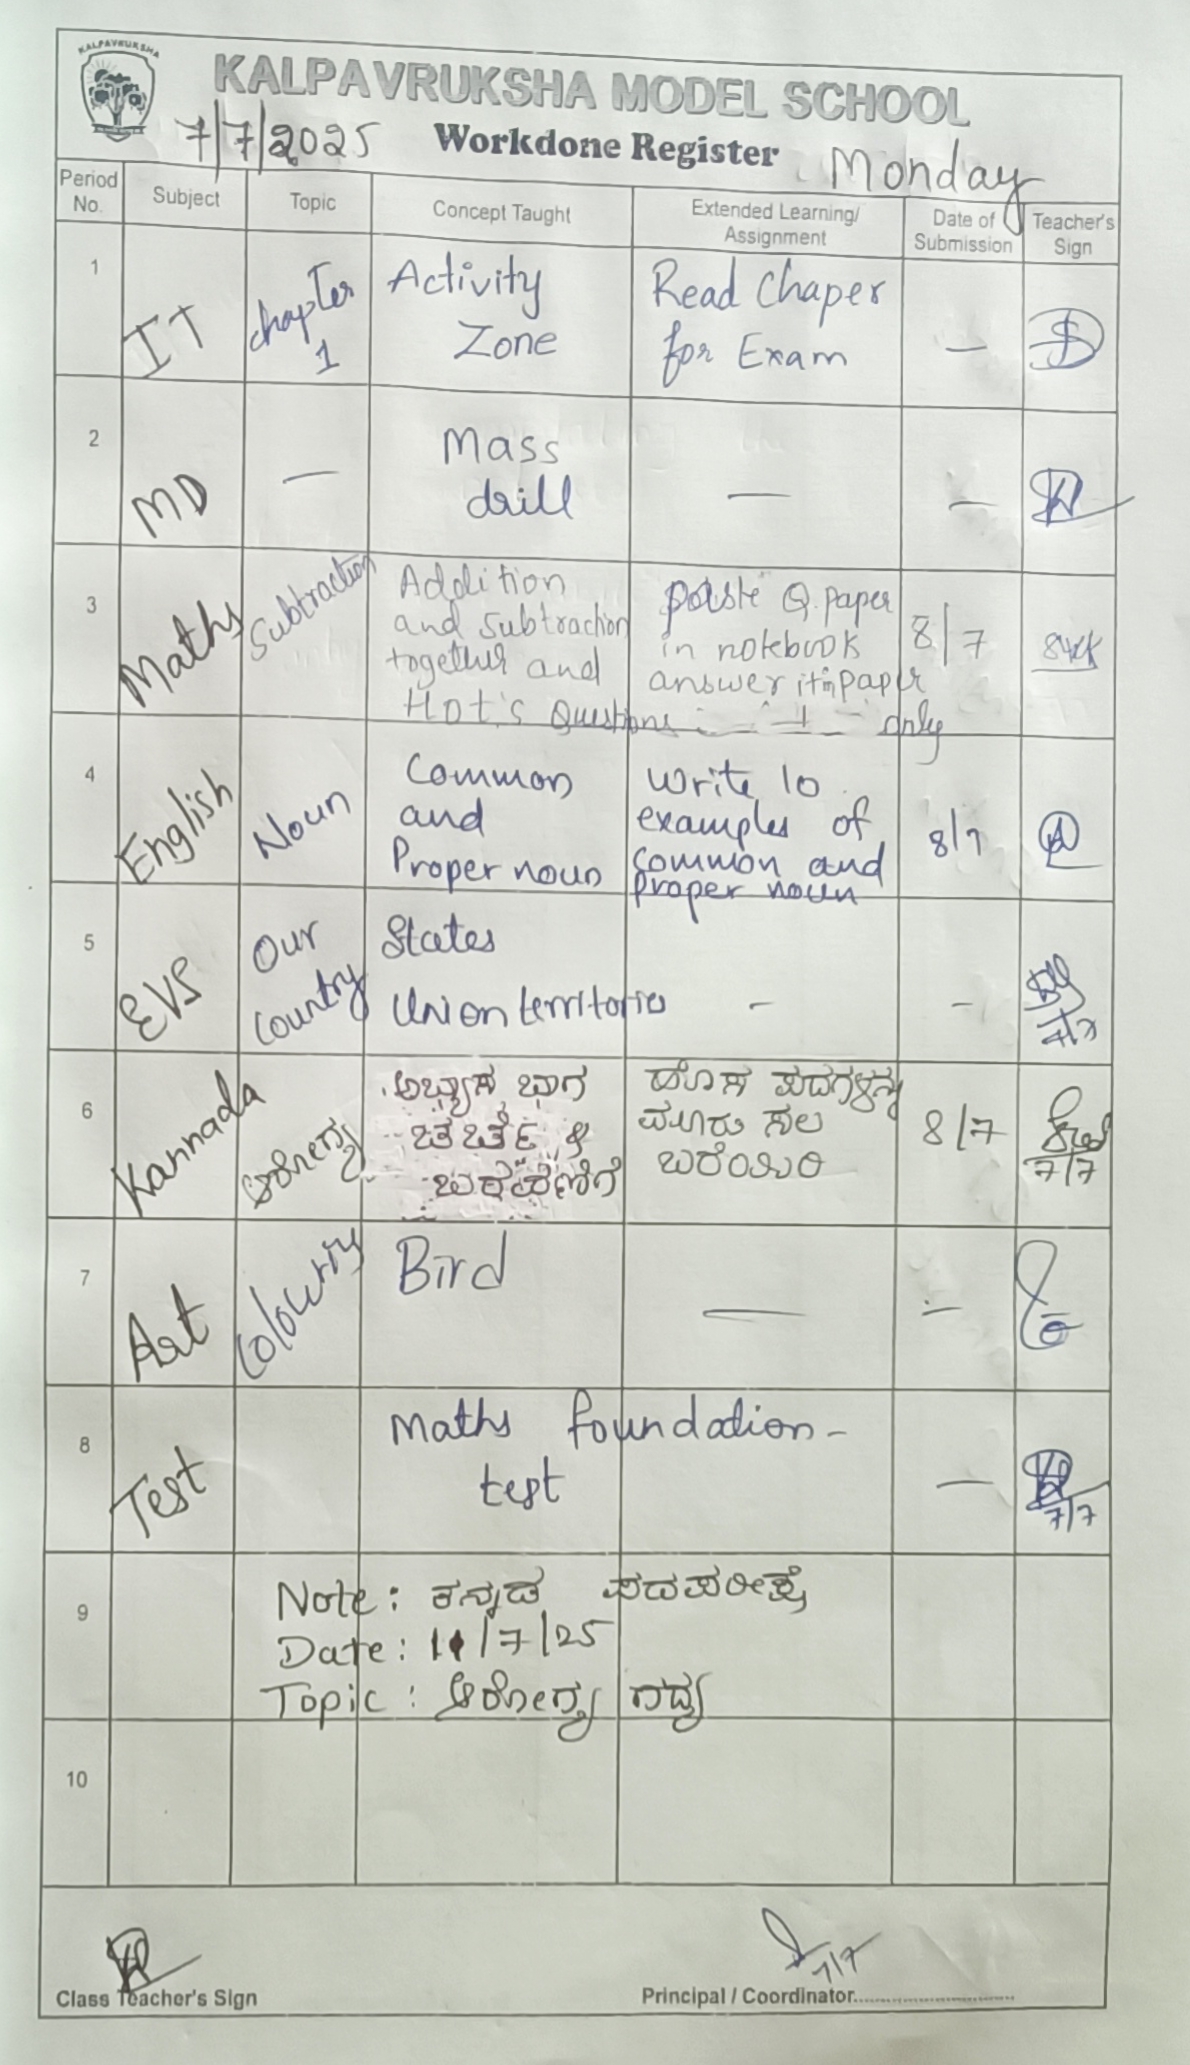 KALPAVRUKSHA
KALPAVRUKSHA MODEL SCHOOL
7/7/2025 Workdone Register Monday
Period No. Subject Topic Concept Taught Extended Learning/ Assignment Date of Submission Teacher's Sign
1 IT Chapter 1 Activity Zone Read Chaper for Exam —
2 MD — Mass drill — —
3 Maths Subtraction Addition and Subtraction together and HOt's Questions paste Q.paper in notebook answer it in paper only 8/7
4 English Noun Common and Proper noun Write 10 examples of common and proper noun 8/7
5 EVS Our Country States Union territories – – 7/7
6 Kannada ಆರೋಗ್ಯ ಅಭ್ಯಾಸ ಭಾಗ ಚರ್ಚೆ & ಬರವಣಿಗೆ ಹೊಸ ಪದಗಳನ್ನು ಮೂರು ಸಲ ಬರೆಯಿರಿ 8/7 7/7
7 Art Colouring Bird — –
8 Test Maths foundation - test — 7/7
9 Note: ಕನ್ನಡ ಪದಪರೀಕ್ಷೆ
Date: 11/7/25
Topic: ಆರೋಗ್ಯ ಗದ್ಯ
10
7/7
Class Teacher's Sign Principal / Coordinator